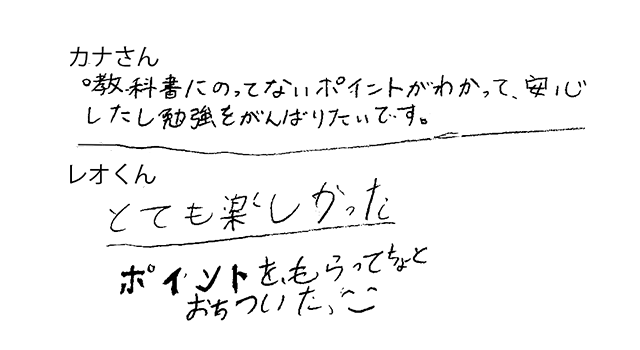 カナさん
°教科書にのってないポイントがわかって、安心
したし勉強をがんばりたいです。
レオくん
とても楽しかった
ポイントを、もらってちょと
おちついた、